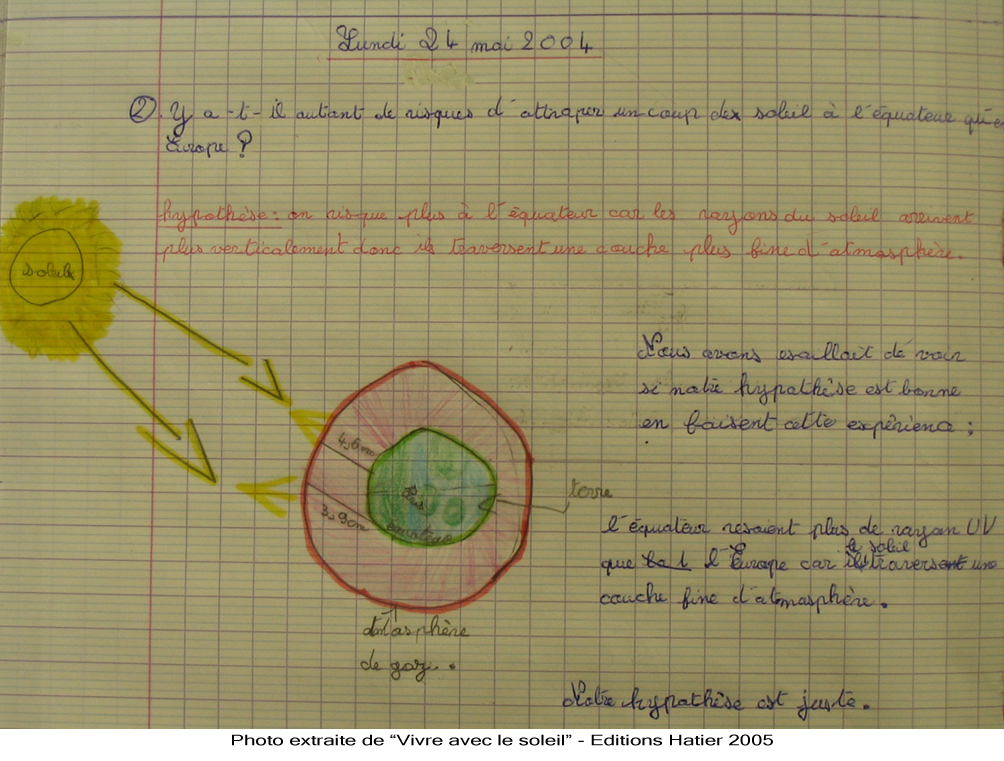 Lundi 24 mai 2004
② Y a-t-il autant de risques d'attraper un coup des soleil à l'équateur qu'e
Europe ?
hypothèse : on risque plus à l'équateur car les rayons du soleil arrivent
plus verticalement donc ils traversent une couche plus fine d'atmosphère.
soleil
Nous avons esaillait de voir
si notre hypothèse est bonne
en faisent cette expérience ;
4,6 cm
3,90 cm
terre
l'équateur resoient plus de rayon UV
que l'Europe car le soleil traversent une
couche fine d'atmosphère.
atmosphère
de gaz.
Notre hypothèse est juste.
Photo extraite de “Vivre avec le soleil” - Editions Hatier 2005